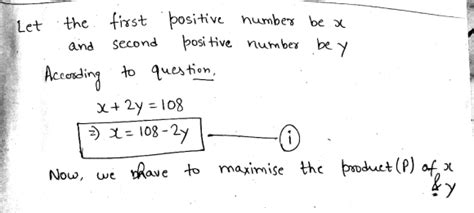 Let the first positive number be x
and second positive number be y
According to question,
x + 2y = 108
⇒ x = 108 - 2y ——— (i)
Now, we have to maximise the product (P) of x
& y